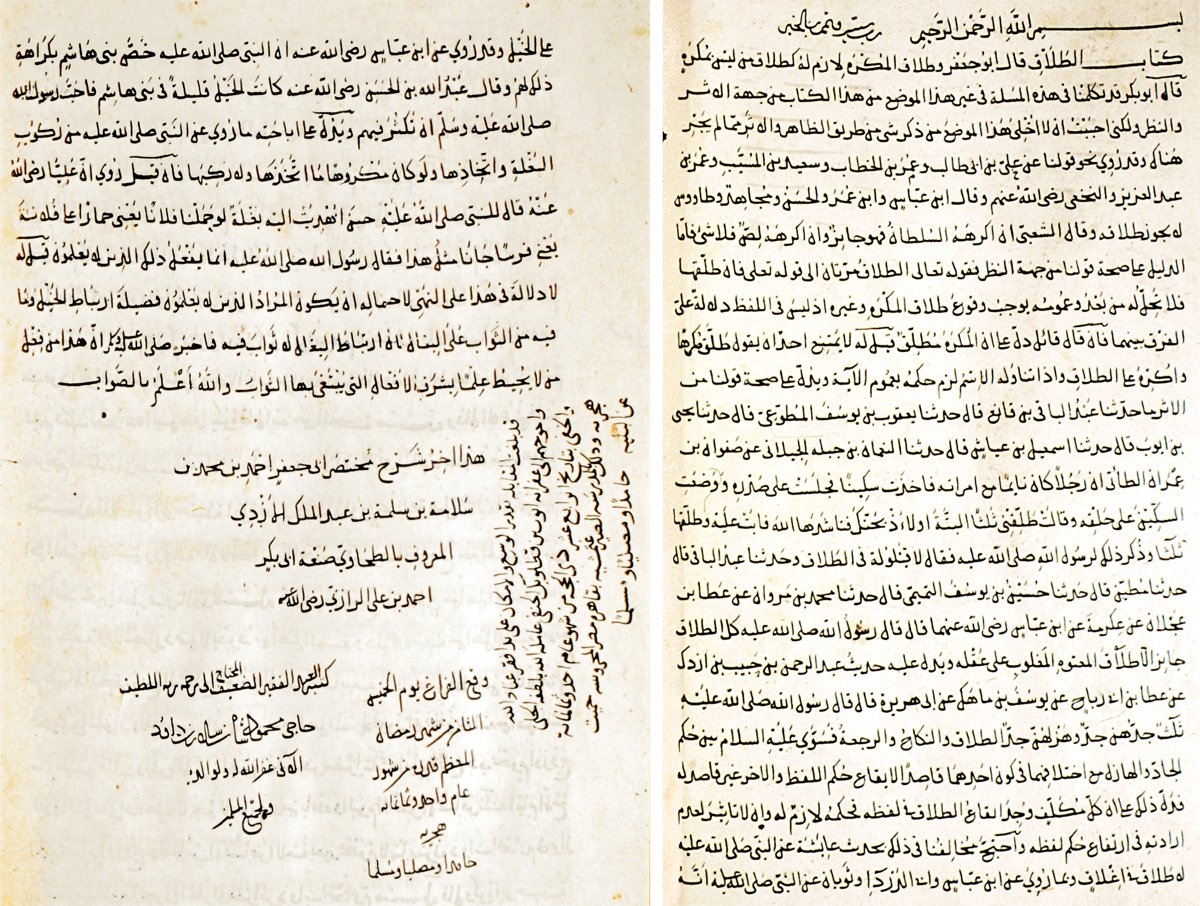 بسم الله الرحمن الرحيم رب يسر وتمم بالخير
كتاب الطلاق قال ابو جعفر وطلاق المكره لازم له كطلاق من ليس بمكره
قال ابو بكر قد تكلمنا في هذه المسلة في غير هذا الموضع من هذا الكتاب من جهة الاثر
والنظر ولكني احببت ان لا اخلي هذا الموضع من ذكر شي من طريق الظاهر والاثر مما لم يجر
هناك وقد روي نحو قولنا عن علي بن ابي طالب وعمر بن الخطاب وسعيد بن المسيب وعمر بن
عبد العزيز والنخعي رضي الله عنهم وقال ابن عباس وابن عمر والحسن ومجاهد وطاووس
لا يجوز طلاقه وقال الشعبي ان اكرهه السلطان فهو جايز وان اكرهه لص فلا شي فاما
الدليل على صحة قولنا من جهة النظر فقوله تعالى الطلاق مرتان الى قوله تعلى فان طلقها
فلا تحل له من بعد وعمومه يوجب وقوع طلاق المكره وغيره اذ ليس في اللفظ دلالة على
الفرق بينهما فان قال قائل دل على ان المكره مطلق قيل له لا يمتنع احد ان يقول طلق مكرها
واكره على الطلاق واذا تناوله الاسم لزم حكمه بعموم الآية ويدل على صحة قولنا من
الاثر ما حدثنا عبد الباقي بن قانع قال حدثنا يعقوب بن يوسف المطوعي قال حدثنا يحيى
بن ايوب قال حدثنا اسمعيل بن عياش قال حدثنا بن جبلة الجبلاني عن صفوان بن
عمران الطائي ان رجلا كان نايما مع امراته فاخذت سكينا فجلست على صدره ووضعت
السكين على حلقه وقالت طلقني ثلثا البتة اولا فناشدها الله فابت عليه وطلقها
ثلثا وذكر ذلك لرسول الله صلى الله عليه فقال لا قيلولة في الطلاق وحدثنا عبد الباقي قال
حدثنا مطين قال حدثنا حسين بن يوسف التميمي قال حدثنا محمد بن مروان عن عطا بن
عجلان عن عكرمة عن ابن عباس رضي الله عنهما قال قال رسول الله صلى الله عليه كل الطلاق
جايز الا طلاق المعتوه المغلوب على عقله ويدل عليه حديث عبد الرحمن بن حبيب بن اردك
عن عطا بن ابي رباح عن يوسف بن ماهك عن ابي هريرة قال قال رسول الله صلى الله عليه
ثلث جدهن جد وهزلهن جد الطلاق والنكاح والرجعة فسوى عليه السلام بين حكم
الجاد والهازل مع اختلافهما في كون احدهما قاصدا لايقاع حكم اللفظ والاخر غير قاصد له
فدل ذلك على ان كل مكلف وجد ايقاع الطلاق في لفظه فحكمه لازم له وان لا تاثير لعدم
ارادته في ارتفاع حكم لفظه واحتج مخالفنا في ذلك بحديث عائشة عن النبي صلى الله عليه
لا طلاق في اغلاق وبما روي عن ابن عباس وابي الدرداء وثوبان عن النبي صلى الله عليه انه
على الخيل وقد روي عن ابن عباس رضي الله عنه ان النبي صلى الله عليه خص بني هاشم بكراهة
ذلك لهم وقال عبد الله بن الحسن رضي الله عنه كانت الخيل قليلة في بني هاشم فاحب رسول الله
صلى الله عليه وسلم ان تكثر فيهم ويدل على اباحته ما روي عن النبي صلى الله عليه من ركوب
البغلة واتخاذها ولو كان مكروها ما اتخذها ولا ركبها فان قيل روي ان عليا رضي الله
عنه قال للنبي صلى الله عليه حين اهديت اليه بغلة لو حملنا فلانا يعني حمارا على فلانة
يعني فرسا جانا مثل هذا فقال رسول الله صلى الله عليه انما يفعل ذلك الذين لا يعلمون قيل له
لا دلالة في هذا على النهي لاحتماله ان يكون المراد الذين لا يعلمون فضيلة ارتباط الخيل وما
فيه من الثواب على البغال لان ارتباط البغال لا ثواب فيه فاخبر صلى الله عليه وسلم ان هذا من فعل
من لا يحيط علما بشرف الافعال التي يبتغى بها الثواب والله اعلم بالصواب
هذا اخر شرح مختصر ابي جعفر احمد بن محمد بن
سلامة بن سلمة بن عبد الملك الازدي
المعروف بالطحاوي صنعة ابي بكر
احمد بن علي الرازي رضي الله عنه
وقع الفراغ يوم الخميس
الثامن من شهر رمضان
المعظم قدره من شهور
عام واحد وثمانمائة
هجرية
حامدا ومصليا ومسلما
كتبه العبد الفقير الضعيف المحتاج الى رحمة ربه اللطيف
حاجي محمود بن داود
غفر الله له ولوالديه
ولجميع المسلمين